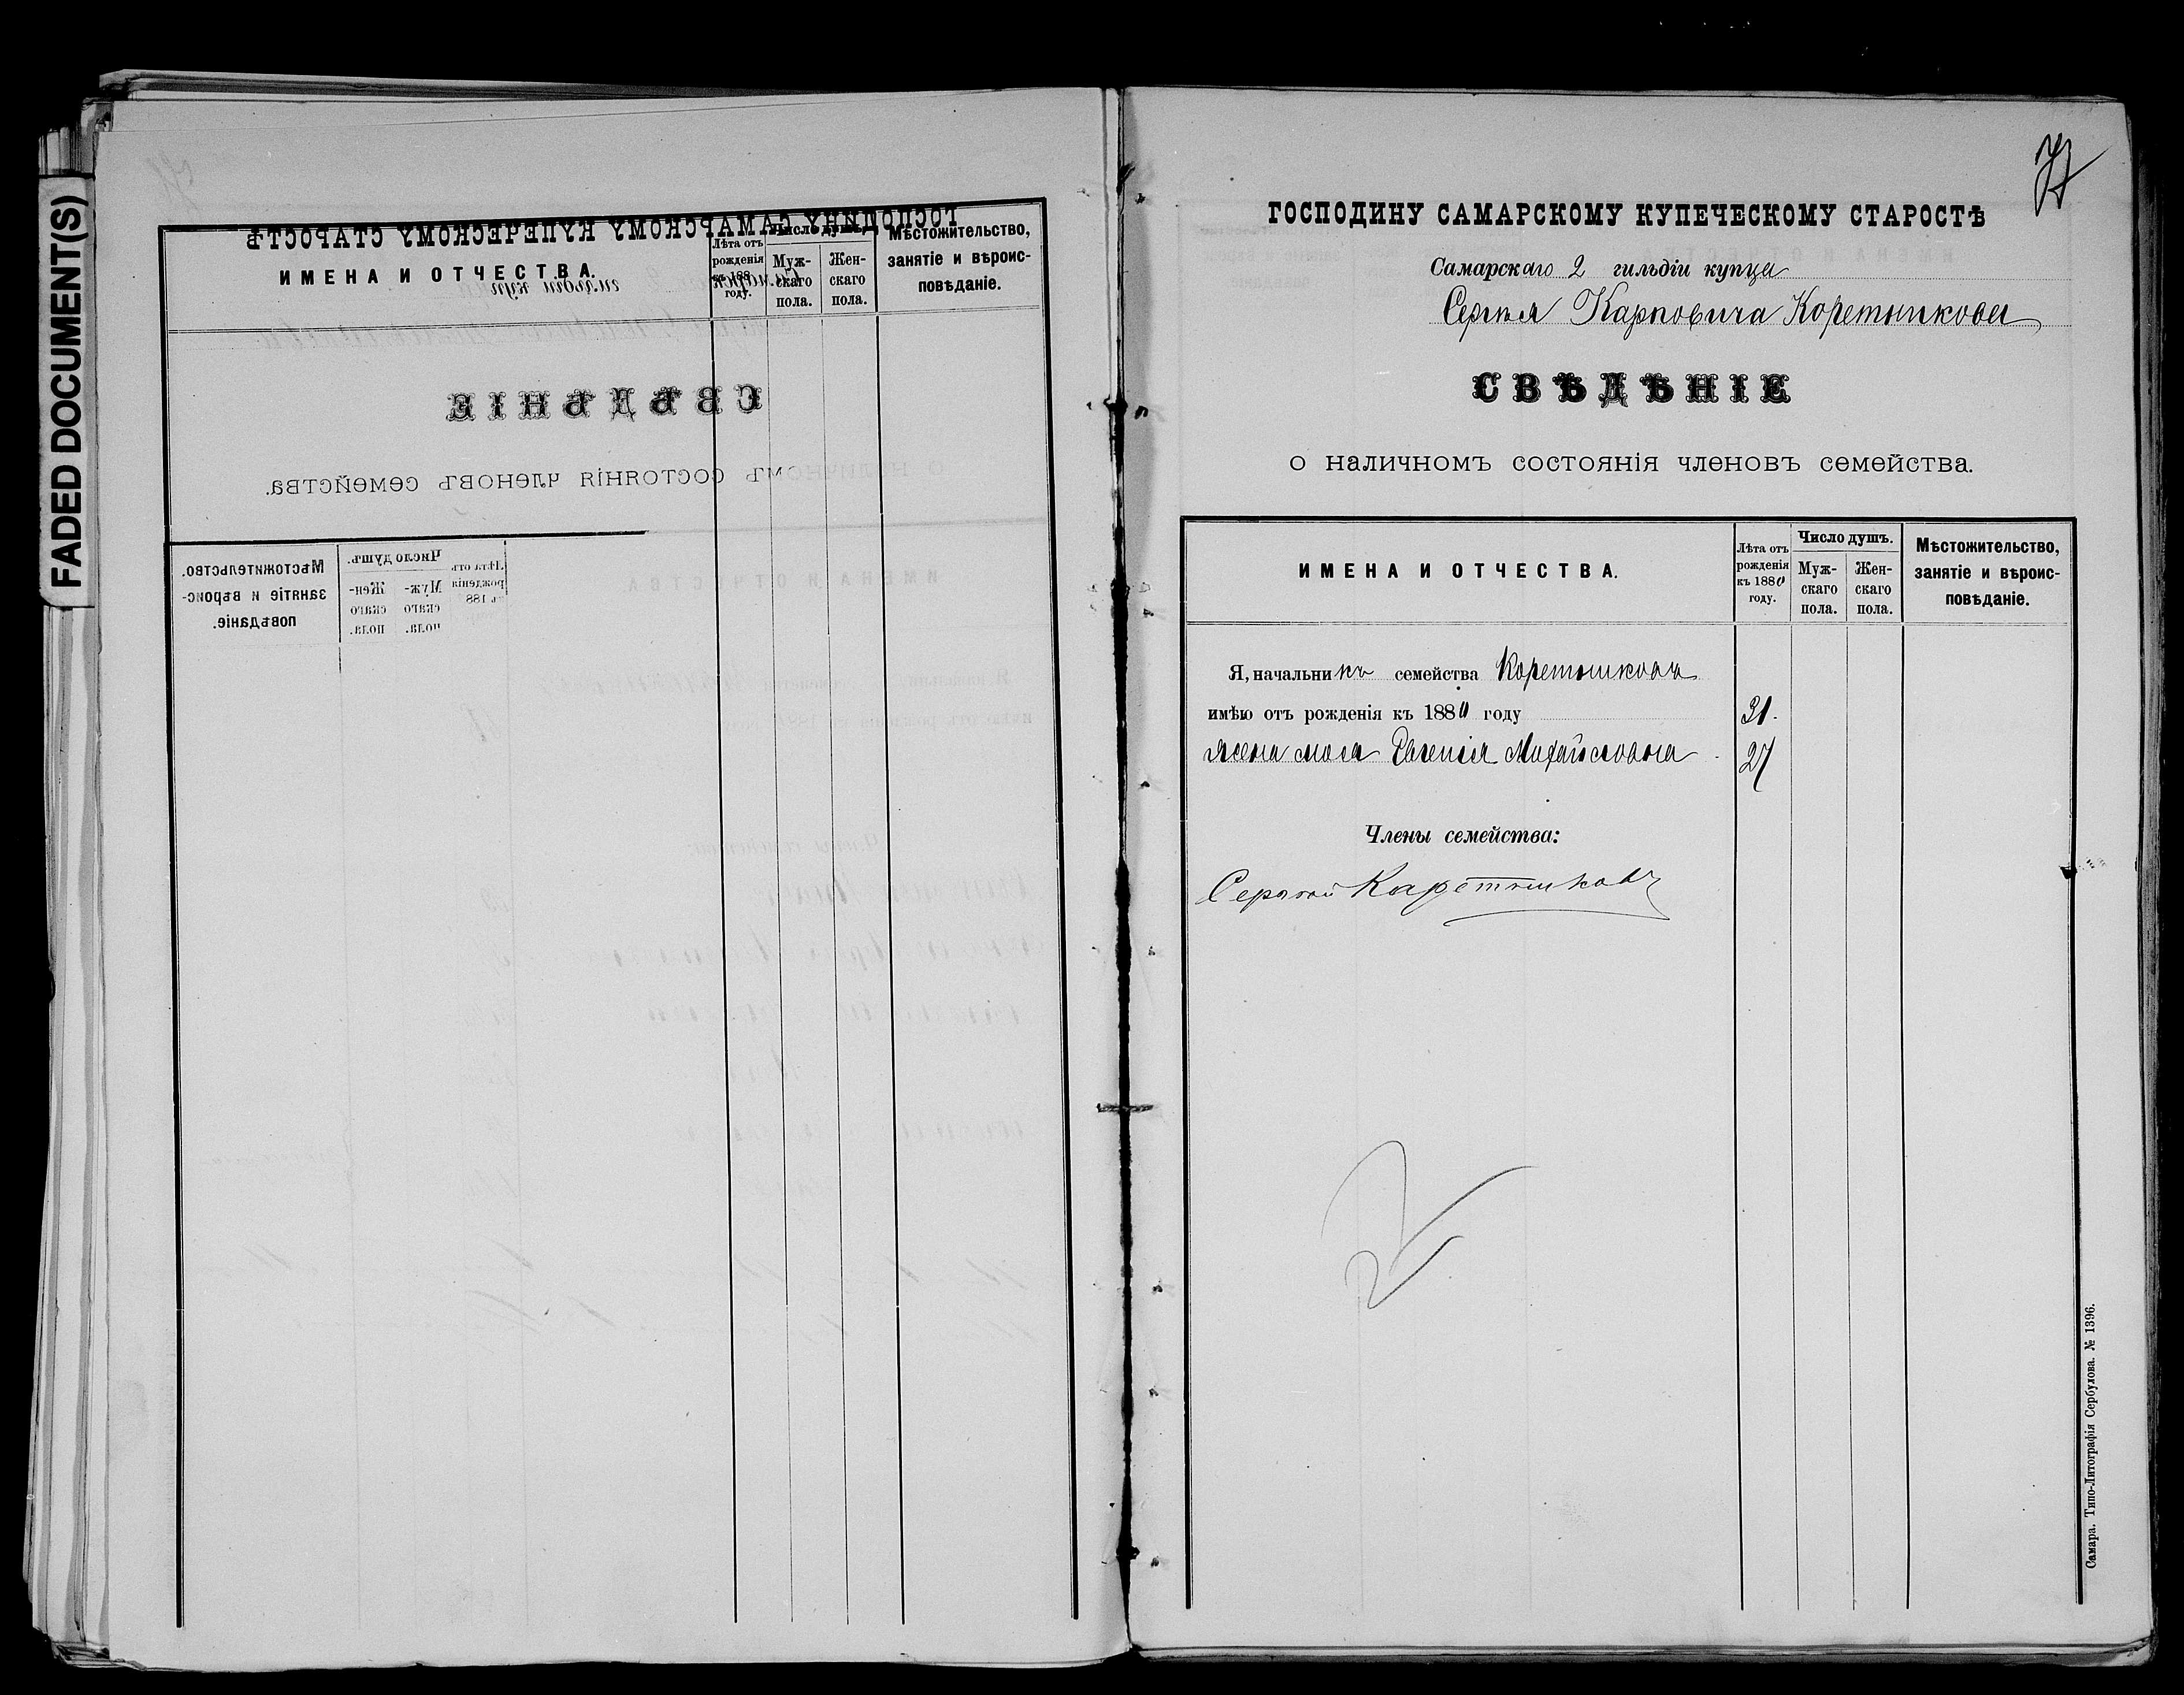 FADED DOCUMENT(S)
ИМЕНА И ОТЧЕСТВА.
Лѣта отъ рожденія къ 188 году.
Число душъ.
Муж-скаго пола.
Жен-скаго пола.
Мѣстожительство, занятіе и вѣроис-повѣданіе.
ГОСПОДИНУ САМАРСКОМУ КУПЕЧЕСКОМУ СТАРОСТѢ
Самарскаго 2 гильдіи купца
Сергѣя Карповича Коретникова
СВѢДѢНІЕ
о наличномъ состоянія членовъ семейства.
ИМЕНА И ОТЧЕСТВА.
Лѣта отъ рожденія къ 1880 году.
Число душъ.
Муж-скаго пола.
Жен-скаго пола.
Мѣстожительство, занятіе и вѣроис-повѣданіе.
Я, начальникъ семейства Коретниковъ
имѣю отъ рожденія къ 1880 году 31.
жена моя Евгенія Михайловна 27
Члены семейства:
Сергѣй Каретниковъ
Самара. Типо-Литографія Сербулова. № 1396.